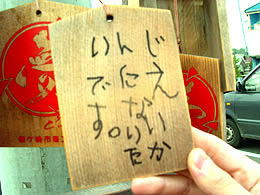 じえいか
んになりた
いです。